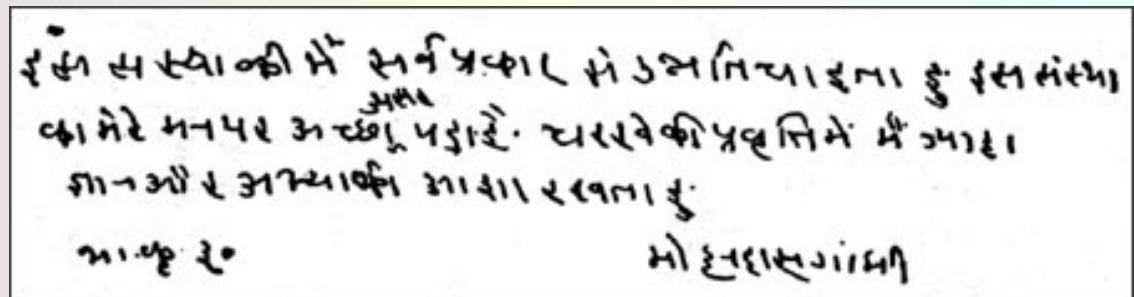 इस सस्था की में सर्व प्रकार से उन्नति चाहता हुं इस संस्था
का मेरे मन पर अच्छा असर पड़ा है. चरखे की प्रवृत्ति में मैं ज्यादा
ज्ञान और अभ्यास की आशा रखता हुं
मोहनदास गांधी